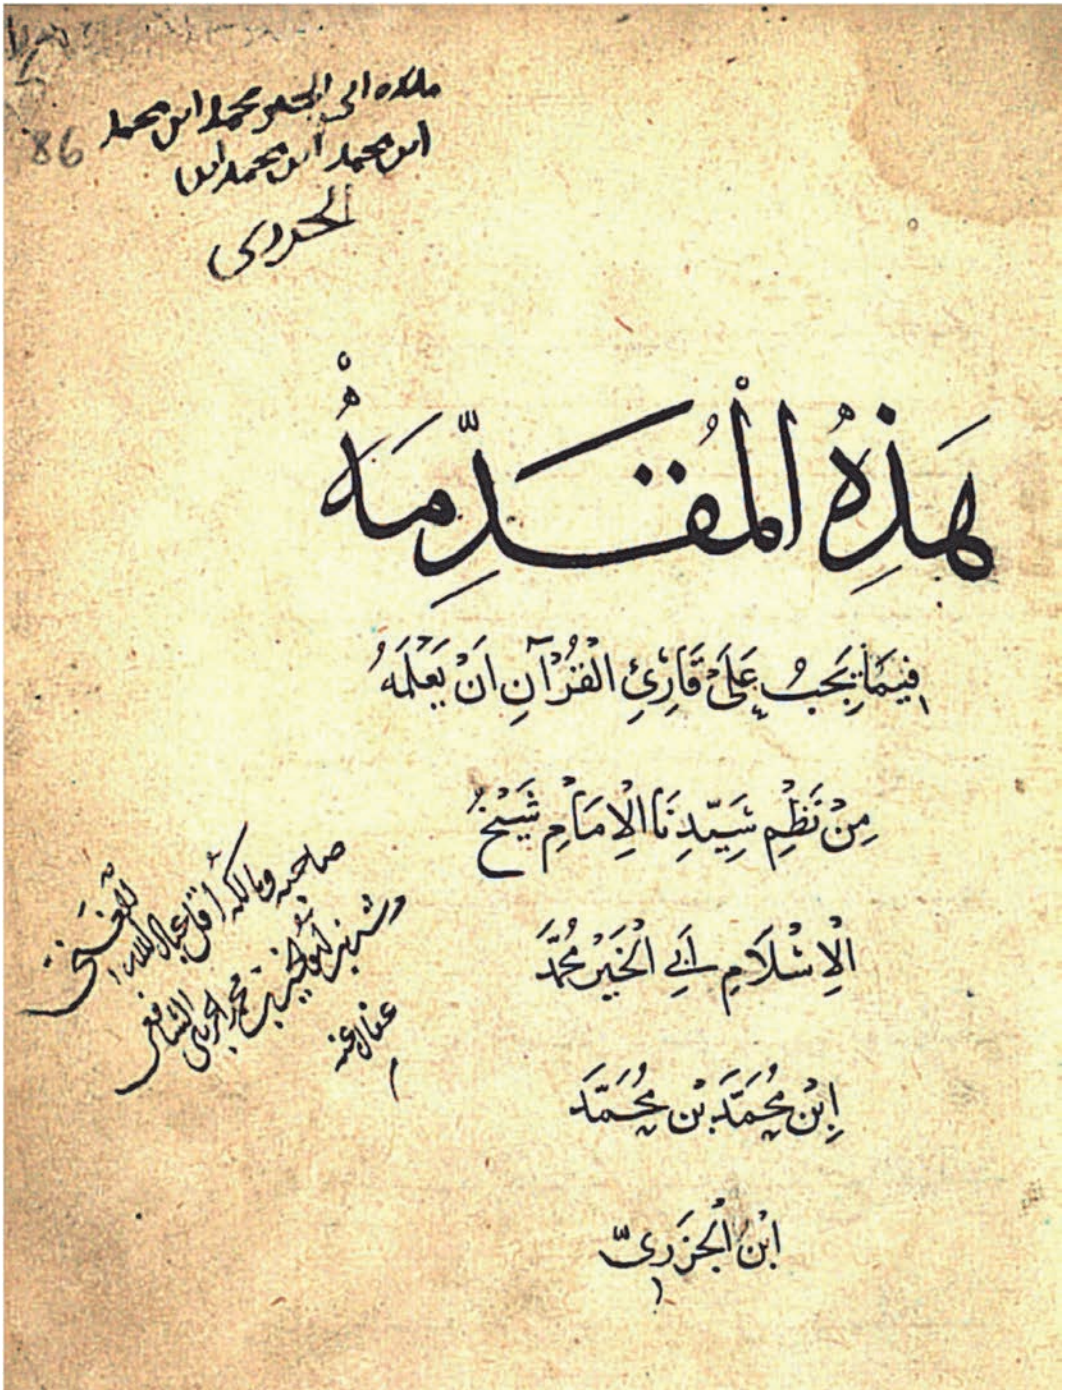 ابى الخير محمد ابن محمد
ابن محمد ابن محمد ابن
الجزرى
86
هَذِهِ الْمُقَدِّمَةُ
فِيمَا يَجِبُ عَلَى قَارِئِ الْقُرْآنِ اَنْ يَعْلَمَهُ
مِنْ نَظْمِ سَيِّدِنَا الْاِمَامِ شَيْخُ
الْاِسْلَامِ اَبِي الْخَيْرْ مُحَمَّدَ
اِبْنِ مُحَمَّدَ بْنِ مُحَمَّدَ
ابْنُ الْجَزَرِىّ
صاحبه ومالكه أقل عباد الله
الغنى
محمد
الشافعى
عنه